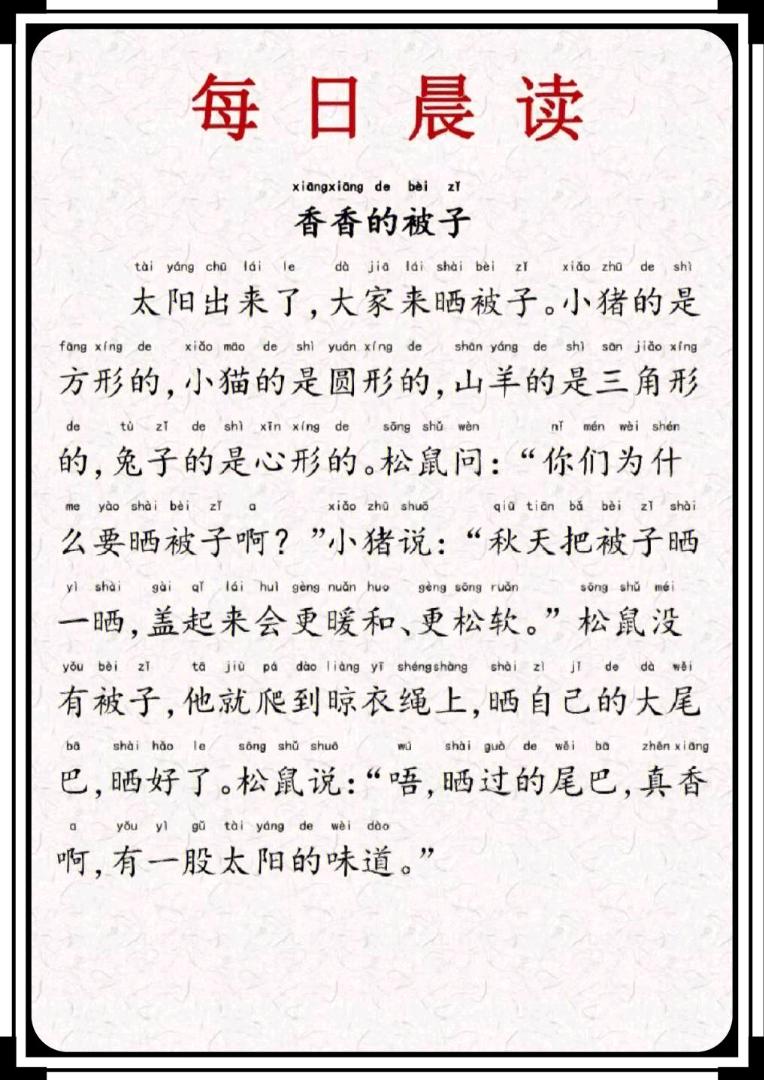 每日晨读
xiāngxiāng de bèi zǐ
香香的被子
tài yáng chū lái le dà jiā lái shài bèi zǐ xiǎo zhū de shì
太阳出来了,大家来晒被子。小猪的是
fāng xíng de xiǎo māo de shì yuán xíng de shān yáng de shì sān jiǎo xíng
方形的,小猫的是圆形的,山羊的是三角形
de tù zǐ de shì xīn xíng de sōng shǔ wèn nǐ mén wèi shén
的,兔子的是心形的。松鼠问:“你们为什
me yào shài bèi zǐ a xiǎo zhū shuō qiū tiān bǎ bèi zǐ shài
么要晒被子啊?”小猪说:“秋天把被子晒
yì shài gài qǐ lái huì gèng nuǎn huo gèng sōng ruǎn sōng shǔ méi
一晒,盖起来会更暖和、更松软。”松鼠没
yǒu bèi zǐ tā jiù pá dào liàng yī shéngshàng shài zì jǐ de dà wěi
有被子,他就爬到晾衣绳上,晒自己的大尾
bā shài hǎo le sōng shǔ shuō wú shài guò de wěi bā zhēn xiāng
巴,晒好了。松鼠说:“唔,晒过的尾巴,真香
a yǒu yì gǔ tài yáng de wèi dào
啊,有一股太阳的味道。”